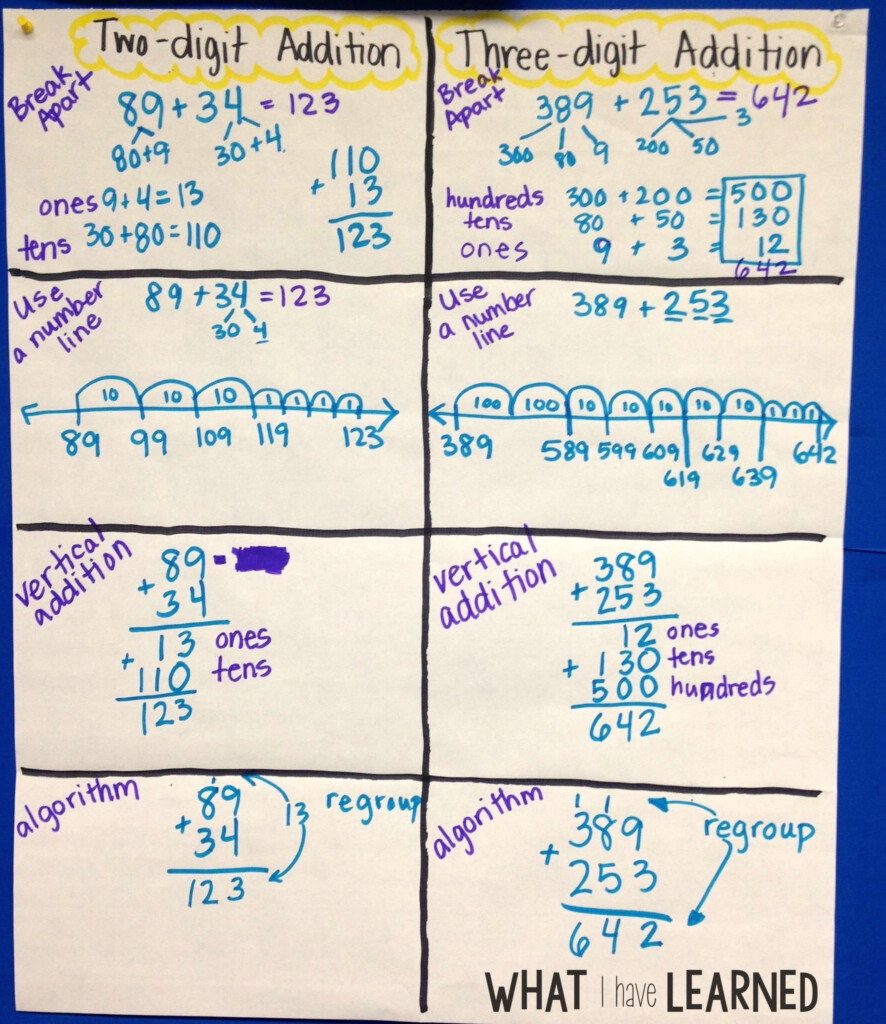 Two-digit Addition
Break Apart
89 + 34 = 123
80+9 30+4
ones 9+4=13
tens 30+80=110
110
+ 13
123
Use a number line
89 + 34 = 123
30 4
10 10 10 1 1 1 1
89 99 109 119 123
vertical addition
89 -
+ 34
13 ones
+ 110 tens
123
algorithm
1
89
+ 34
123
13 regroup
Three-digit Addition
Break Apart
389 + 253 = 642
300 80 9 200 50 3
hundreds 300 + 200 = 500
tens 80 + 50 = 130
ones 9 + 3 = 12
642
Use a number line
389 + 253
100 100 10 10 10 10 10 1 1 1
389 589 599 609 619 629 639 642
vertical addition
389
+ 253
12 ones
+ 130 tens
500 hundreds
642
algorithm
1 1
389
+ 253
642
regroup
WHAT I have LEARNED